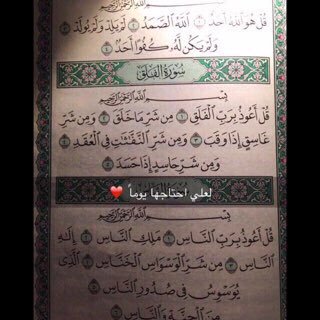 بِسْمِ اللَّهِ الرَّحْمَٰنِ الرَّحِيمِ
قُلْ هُوَ اللَّهُ أَحَدٌ ١ اللَّهُ الصَّمَدُ ٢ لَمْ يَلِدْ وَلَمْ يُولَدْ ٣
وَلَمْ يَكُن لَّهُ كُفُوًا أَحَدٌ ٤
سُورَةُ الْفَلَقِ
بِسْمِ اللَّهِ الرَّحْمَٰنِ الرَّحِيمِ
قُلْ أَعُوذُ بِرَبِّ الْفَلَقِ ١ مِن شَرِّ مَا خَلَقَ ٢ وَمِن شَرِّ
غَاسِقٍ إِذَا وَقَبَ ٣ وَمِن شَرِّ النَّفَّاثَاتِ فِي الْعُقَدِ ٤
وَمِن شَرِّ حَاسِدٍ إِذَا حَسَدَ ٥
لعلي احتاجها يوماً ❤
بِسْمِ اللَّهِ الرَّحْمَٰنِ الرَّحِيمِ
قُلْ أَعُوذُ بِرَبِّ النَّاسِ ١ مَلِكِ النَّاسِ ٢ إِلَٰهِ
النَّاسِ ٣ مِن شَرِّ الْوَسْوَاسِ الْخَنَّاسِ ٤ الَّذِي
يُوَسْوِسُ فِي صُدُورِ النَّاسِ ٥
مِنَ الْجِنَّةِ وَالنَّاسِ